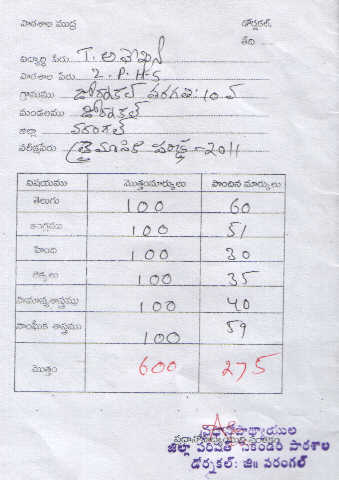 పాఠశాల ముద్ర డోర్నకల్,
తేది
విద్యార్థి పేరు T. అ
పాఠశాల పేరు Z. P. H. S
గ్రామము డోర్నకల్ తరగతి: 10 వ
మండలము డోర్నకల్
జిల్లా వరంగల్
పరీక్షపేరు త్రైమాసిక పరీక్ష - 2011
విషయము మొత్తంమార్కులు పొందిన మార్కులు
తెలుగు 100 60
ఇంగ్లీషు 100 51
హింది 100 30
లెక్కలు 100 35
సామాన్యశాస్త్రము 100 40
సాంఘిక శాస్త్రము 100 59
మొత్తం 600 275
ప్రధానోపాధ్యాయుల
జిల్లా పరిషత్ సెకండరి పాఠశాల
డోర్నకల్: జి॥ వరంగల్